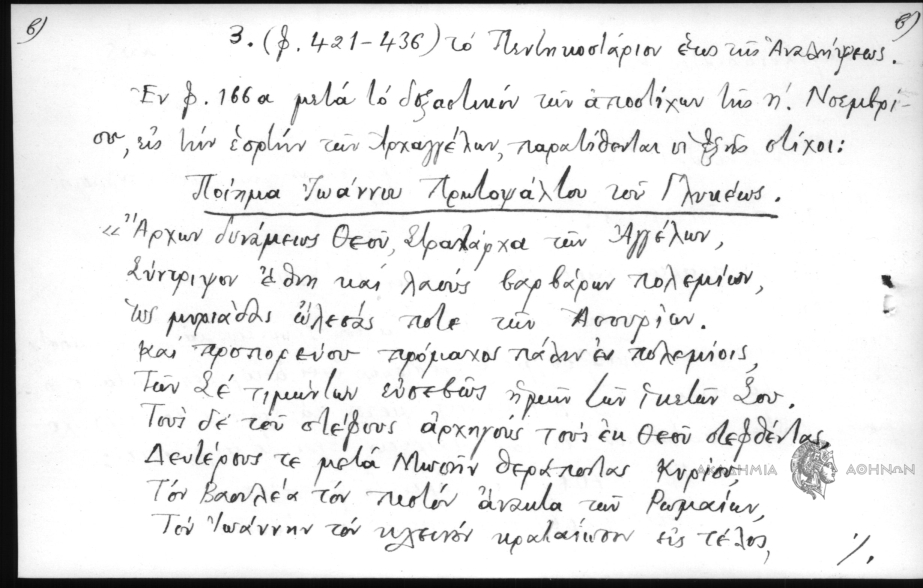 β) 3. (φ. 421-436) τό Πεντηκοστάριον ἕως τῆς Ἀναλήψεως. β)
Ἐν φ. 166α μετά τό δοξαστικόν τῶν ἀποστίχων τῆς η΄. Νοεμβρί-
ου, εἰς τήν ἑορτήν τῶν Ἀρχαγγέλων, παρατίθενται οἱ ἑξῆς στίχοι:
Ποίημα Ἰωάννου Πρωτοψάλτου τοῦ Γλυκέως.
«Ἄρχων δυνάμεως Θεοῦ, Στρατάρχα τῶν Ἀγγέλων,
Σύντριψον ἔθνη καί λαούς βαρβάρων πολεμίων,
Ὡς μυριάδας ὤλεσάς ποτε τῶν Ἀσσυρίων.
Καί προπορεύου πρόμαχος πάλιν ἐν πολεμίοις,
Τῶν Σέ τιμώντων εὐσεβῶς ἡμῶν τῶν ἱκετῶν Σου.
Τούς δέ τοῦ στέφους ἀρχηγούς τούς ἐκ Θεοῦ στεφθέντας,
Δευτέρους τε μετά Μωσῆν θεράποντας Κυρίου,
ΑΚΑΔΗΜΙΑ ΑΘΗΝΩΝ
Τόν Βασιλέα τόν πιστόν ἄνακτα τῶν Ρωμαίων,
Τόν Ἰωάννην τόν κλεινόν κραταίωσον εἰς τέλος,
./.